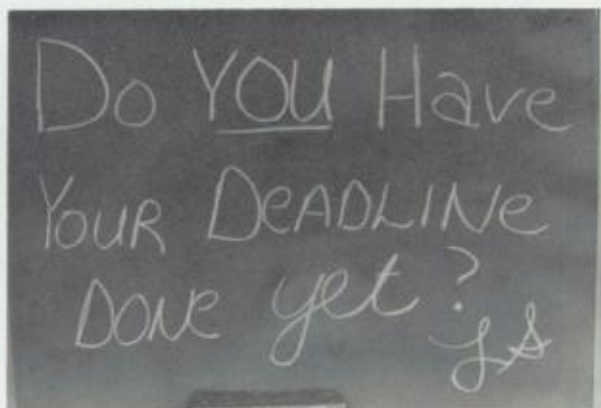 Do YOU Have
YOUR DeADLINe
DONe yet?